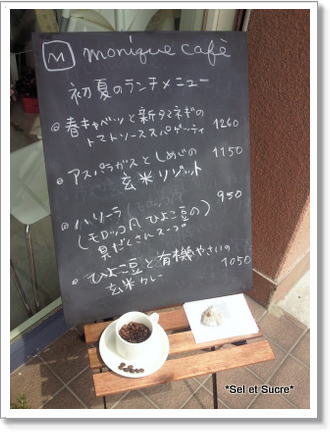 M monique café
初夏のランチメニュー
◎春キャベツと新タマネギの
トマトソーススパゲッティ 1260
◎アスパラガスとしめじの 1150
玄米リゾット
◎ハリーラ 950
(モロッコ風 ひよこ豆の)
具だくさんスープ
◎ひよこ豆と有機やさいの 1050
玄米カレー
*Sel et Sucre*